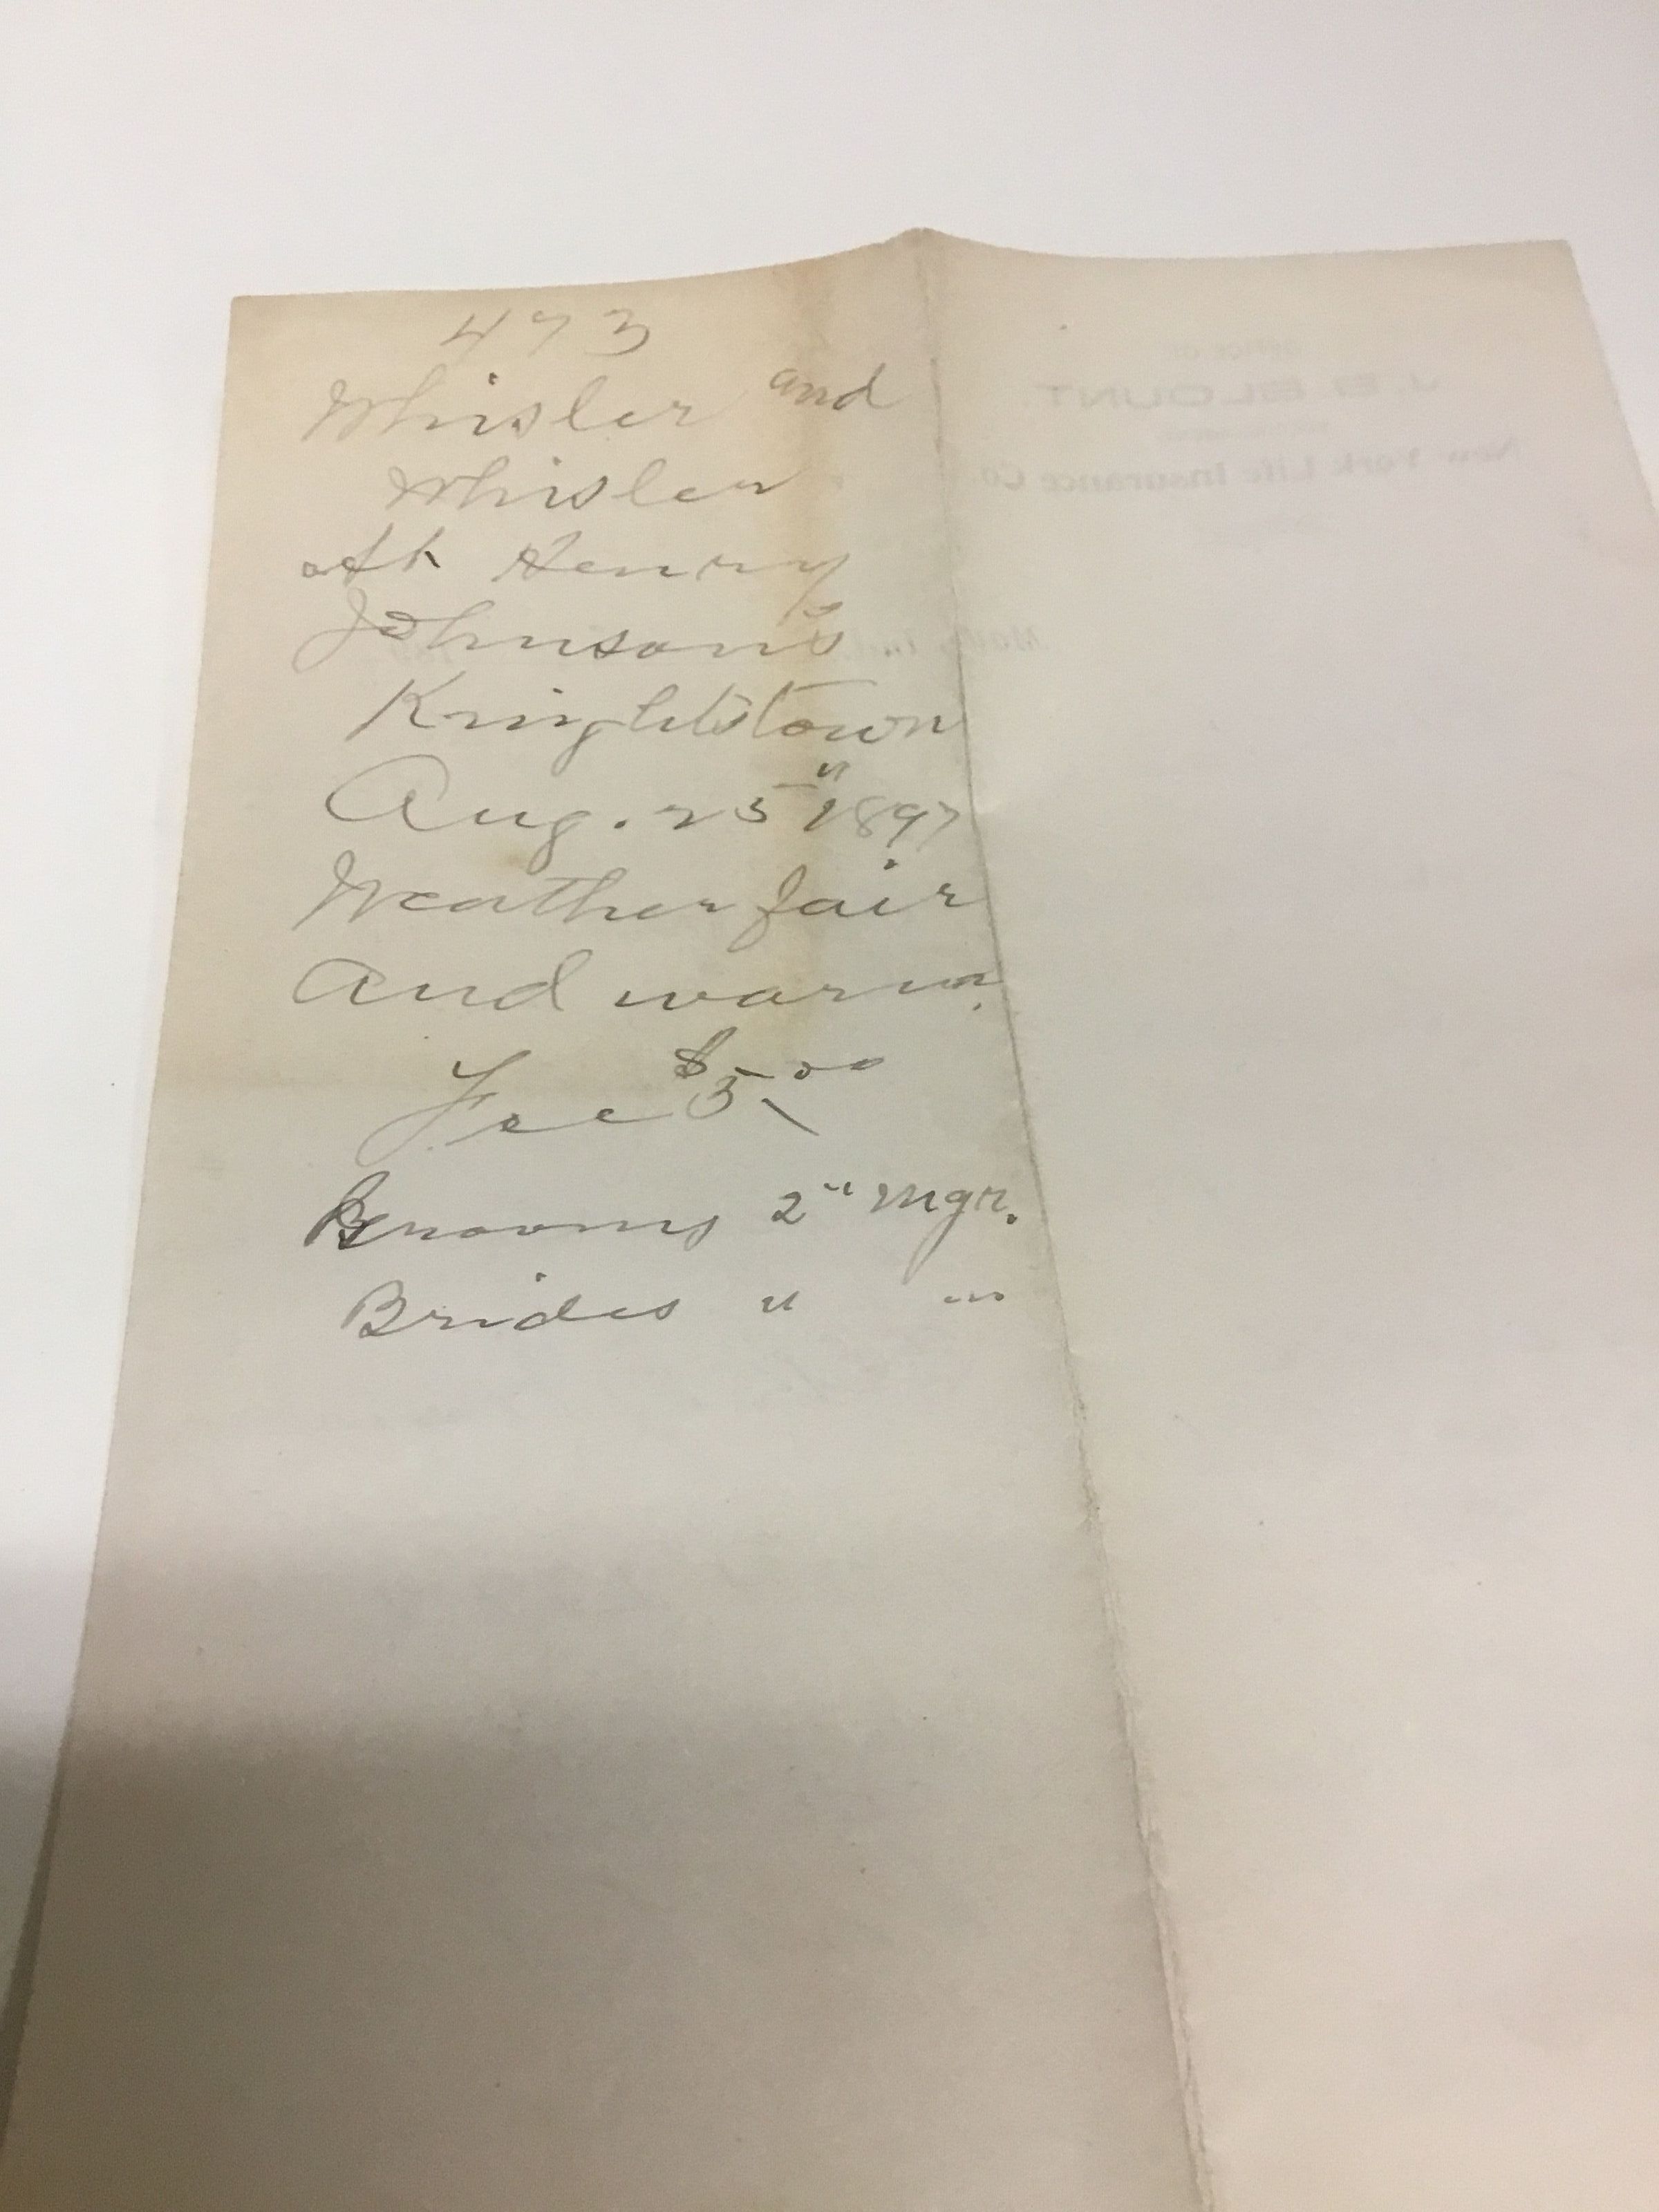 473
Whisler and
Whisler
At Henry
Johnson's
Knightstown
Aug. 25" 1897
Weather fair
And warm.
Fee $5.00
Grooms 2" Mgr.
Brides " "
OFFICE OF
J. B. BLOUNT.
New York Life Insurance Co.